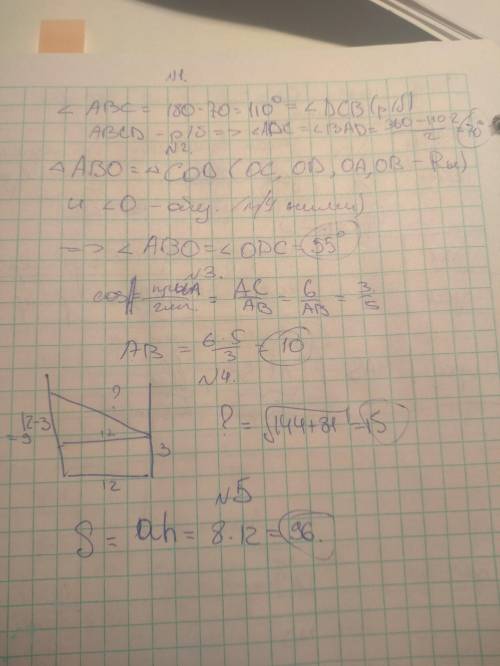 №1.
∠ABC = 180-70=110° = ∠DCB (р/б)
ABCD – р/б => ∠ADC = ∠BAD = 360-110·2/2 = 70°
№2
△ABO = △COD (OC, OD, OA, OB – Rы)
и ∠O – общ.
=> ∠ABO = ∠ODC = 55°
№3.
cos A = прил/гип = AC/AB = 6/AB = 3/5
AB = 6·5/3 = 10
№4.
?
12-3
=9
12
3
12
? = √144+81 = 15
№5
S = ah = 8·12 = 96.